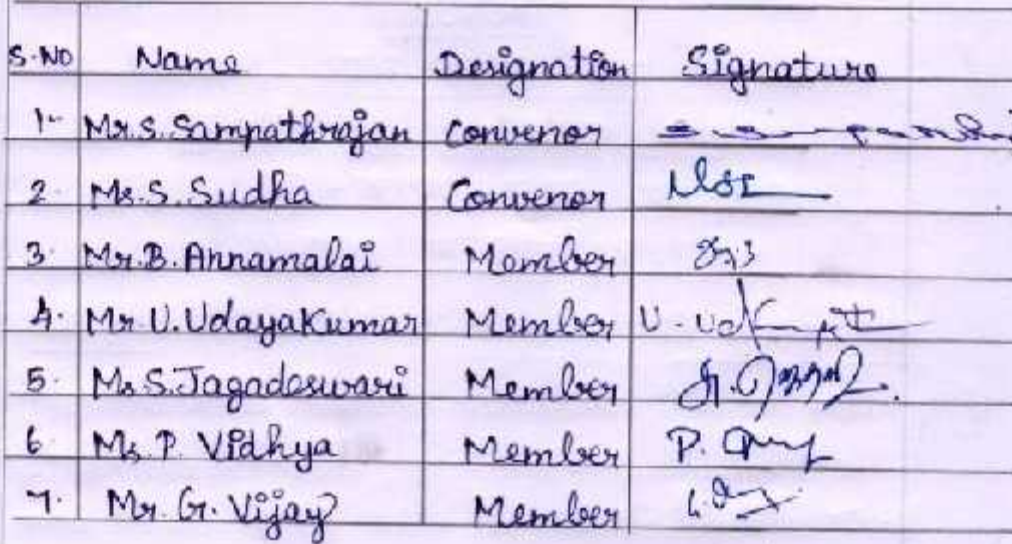 S.NO Name Designation Signature
1. Mr.S.Sampathrajan Convenor
2. Ms.S.Sudha Convenor
3. Mr.B.Annamalai Member
4. Mr.U.UdayaKumar Member
5. Ms.S.Jagadeswari Member
6 Ms.P.Vidhya Member
7. Mr.G.Vijay Member